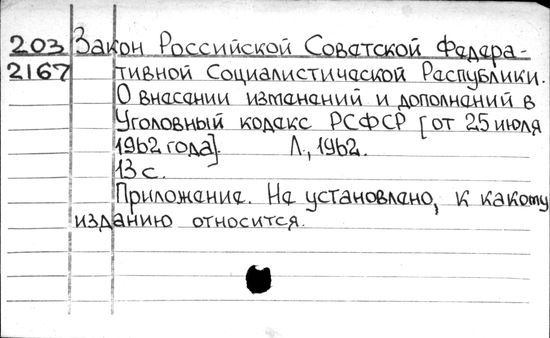 203 Закон Российской Советской Федера-
2167 тивной Социалистической Республики.
О внесении изменений и дополнений в
Уголовный кодекс РСФСР [от 25 июля
1962 года]. Л., 1962.
13 с.
Приложение. Не установлено, к какому
изданию относится.